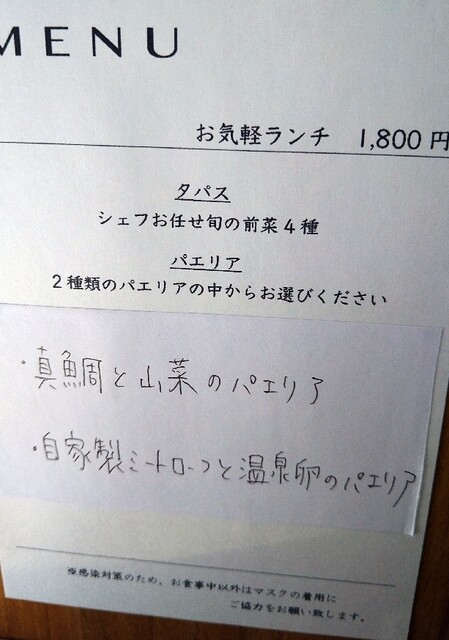 MENU
お気軽ランチ 1,800円
タパス
シェフお任せ旬の前菜4種
パエリア
2種類のパエリアの中からお選びください
・真鯛と山菜のパエリア
・自家製ミートローフと温泉卵のパエリア
※感染対策のため、お食事中以外はマスクの着用に
ご協力をお願い致します。